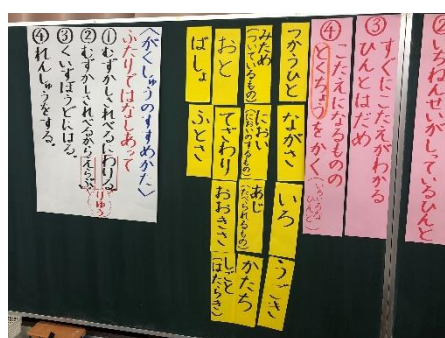 ②ちわんせいがしているひんと
③すぐにこたえがわかる
ひんとはだめ
④こたえになるものの
とくちょうをかく
つかうひと
ながさ
いろ
うごき
みため
(ついているもの)
におい
(においのするもの)
あじ
(たべられるもの)
かたち
おと
てざわり
おおきさ
しごと
(はたらき)
ばしょ
ふとさ
〈がくしゅうのすすめかた〉
ふたりではなしあって
①むずかしされべるにわける
②むずかしされべるからえらぶ
りゆう
③くいずぼうどにはる。
④れんしゅうをする。